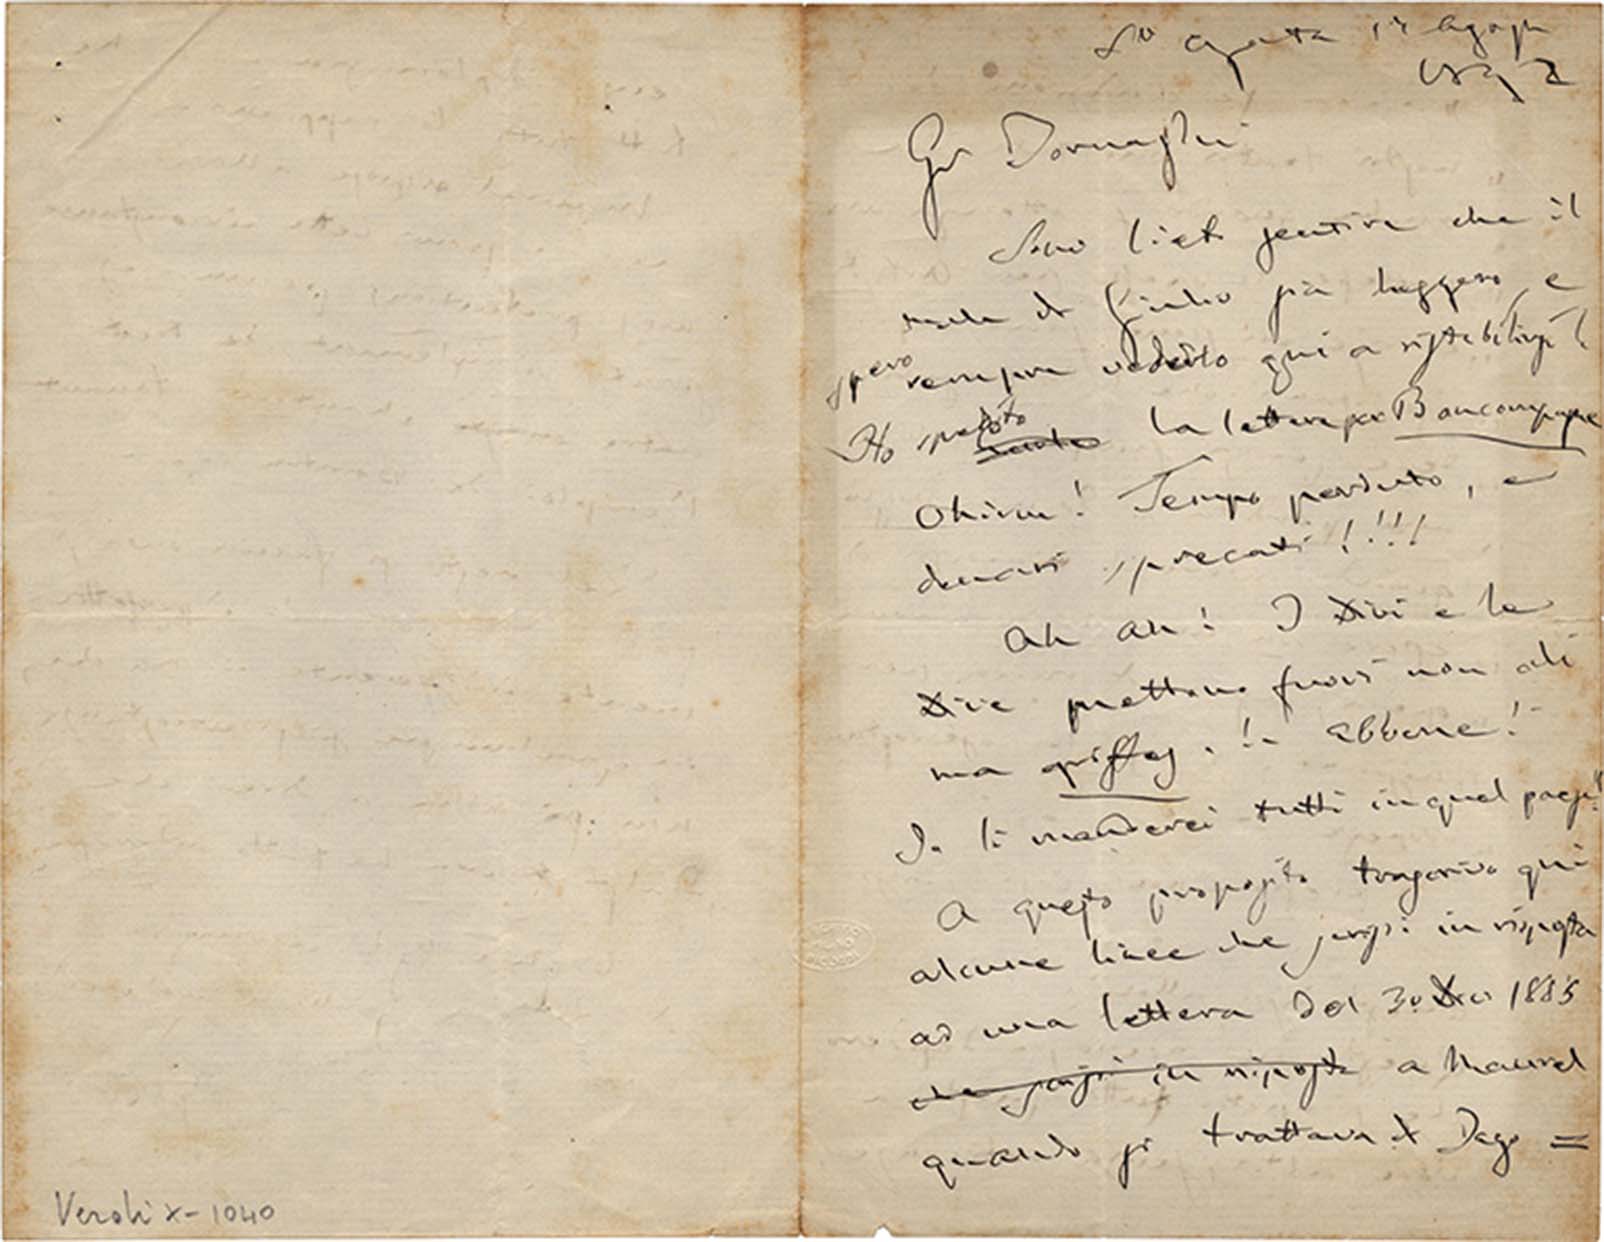 Sa Agata 17 Agosto
1892
Gus Tornaghi
Sono lieto sentire che il
male di Giulio sia leggero, e
spero sempre vederlo qui a ristabilirsi
Ho spedito la lettera per Bauconpagne
Ohimè! Tempo perduto, e
denari sprecati!!!!
Ah ah! I Divi e le
Dive mettono fuori non ali
ma griffes.!! Abbene!
Io li manderei tutti in quel paese!!
A questo proposito trascrivo qui
alcune linee che scrissi in risposta
ad una lettera del 30 Dec 1885
che scrissi in risposta a Maurel
quando si trattava di Jago =
Verdi X-1040